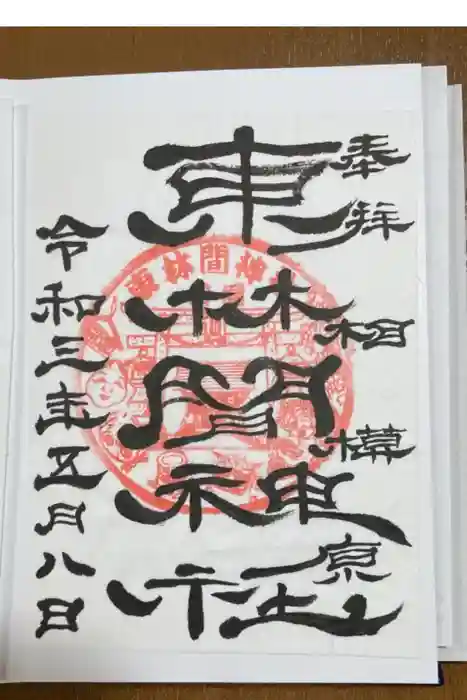 奉拝 相模原
東林間神社
令和三年五月八日
東林間